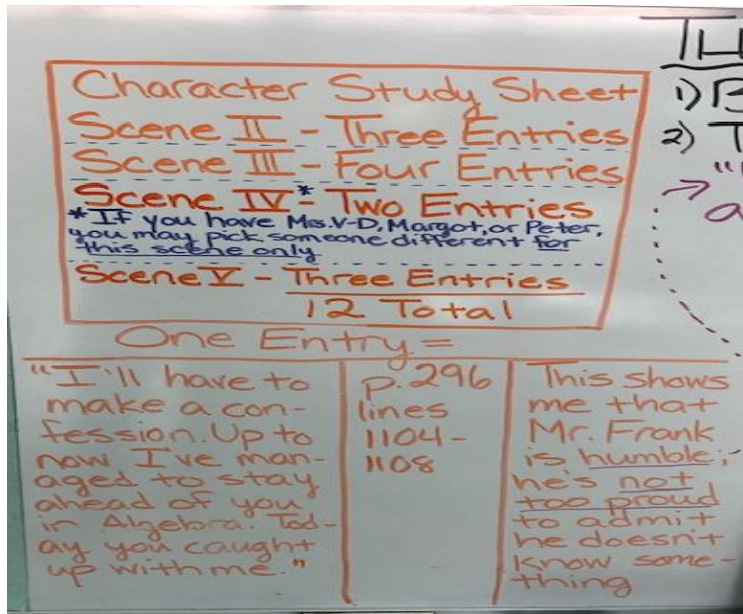 Character Study Sheet
Scene II - Three Entries
Scene III - Four Entries
Scene IV* - Two Entries
*If you have Mrs. V-D, Margot, or Peter,
you may pick someone different for
this scene only
Scene V - Three Entries
12 Total
One Entry =
"I'll have to
make a con-
fession. Up to
now I've man-
aged to stay
ahead of you
in Algebra. Tod-
ay you caught
up with me."
p. 296
lines
1104-
1108
This shows
me that
Mr. Frank
is humble;
he's not
too proud
to admit
he doesn't
know some-
thing
1)
2)